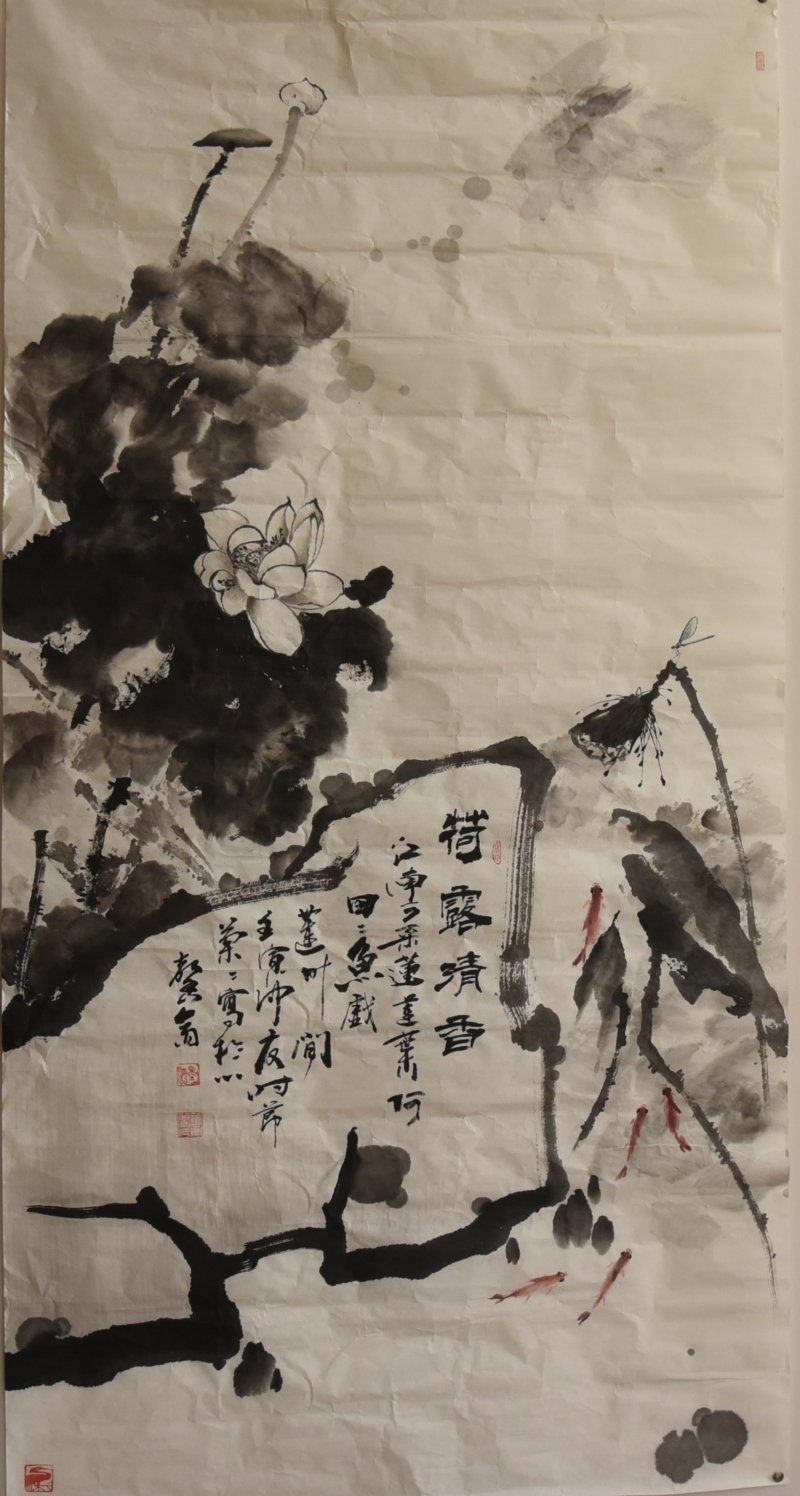 荷露清香
江南可采蓮蓮葉何
田〻魚戲
蓮叶間
壬寅仲夏时节
寫於
翁